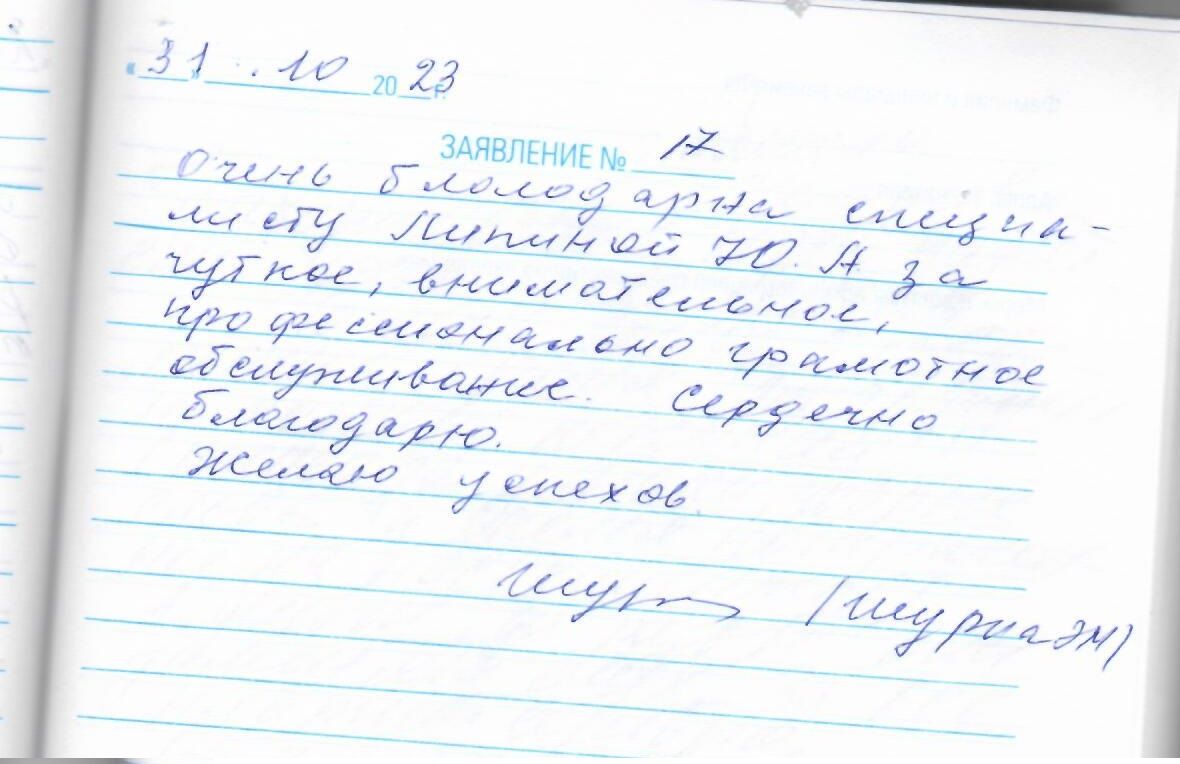 «31» . 10 2023 г.
ЗАЯВЛЕНИЕ № 17
Очень благодарна специа-
листу Липиной Ю.А за
чуткое, внимательное,
профессионально грамотное
обслуживание. Сердечно
благодарю.
Желаю успехов.